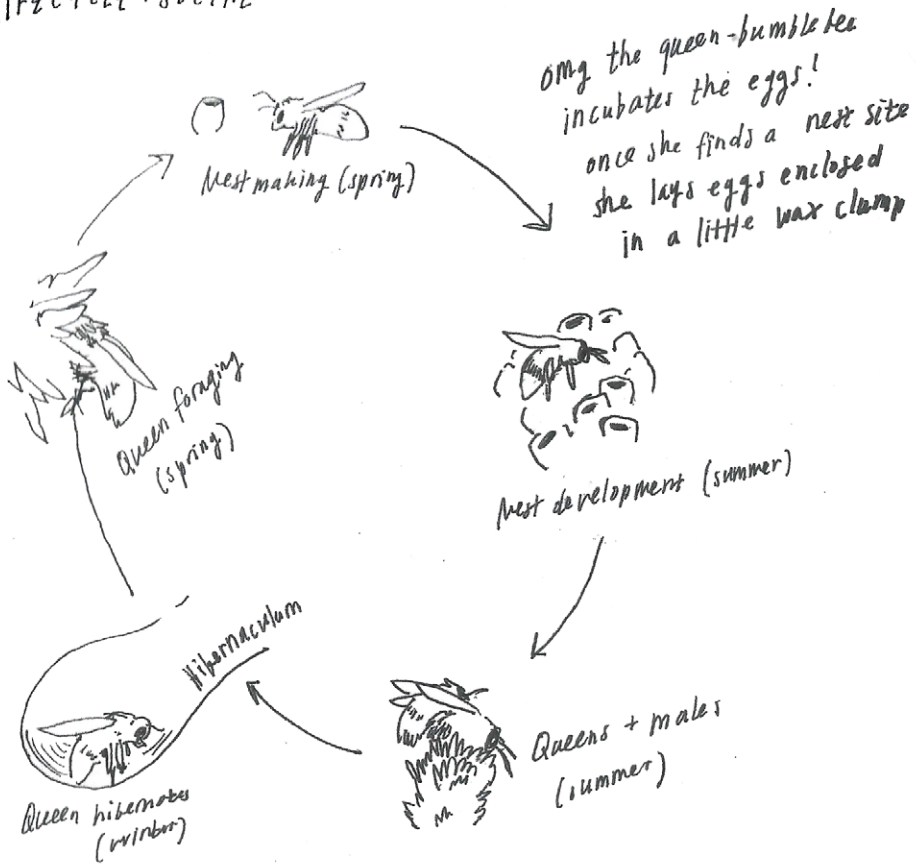 omg the queen-bumblebee
incubates the eggs!
once she finds a nest site
she lays eggs enclosed
in a little wax clump
Nest making (spring)
Queen foraging
(spring)
Nest development (summer)
Hibernaculum
Queens + males
(summer)
Queen hibernates
(winter)